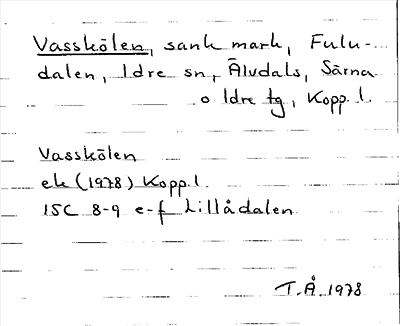 Vasskölen, sank mark, Fulu-
dalen, Idre sn, Älvdals, Särna
o Idre tg, Kopp. l.
Vasskölen
ek (1978) Kopp. l.
15C 8-9 e-f Lillådalen
T.Å. 1978